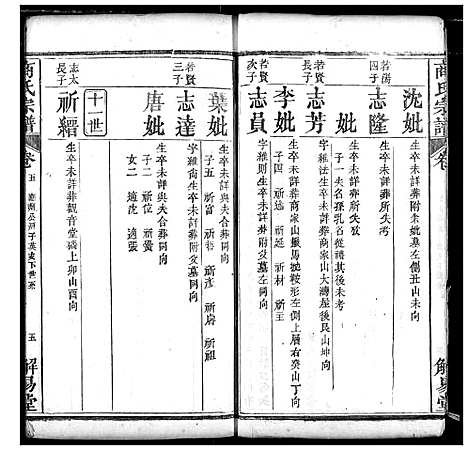 商氏宗譜
沈妣
生卒未詳葬附姑墓左側丑山未向
若陽
四子
志隆
生卒未詳葬所失考
妣
生卒未詳葬所失攷
子一 夫名孫乳名從禎其後未考
若賢
長子
志芳
字 生卒未詳葬商家山大灣屋後艮山坤向
李妣
生卒未詳葬商家山 馬 鞍形左側上層右癸山丁向
子四 祈 祈延 祈材 祈玉
若賢
次子
志員
字 則生卒未詳葬附父墓左同向
葉妣
生卒未詳與夫合葬同向
子五 祈富 祈 祈彥 祈 祈祖
若賢
三子
志達
字 尚生卒未詳葬附父墓同向
唐妣
生卒未詳與夫合葬同向
子二 祈位 祈
女二 適沈 適張
十一世
志太
長子
祈縉
生卒未詳葬觀音堂 上卯山酉向
商氏宗譜
卷五
五
解易堂